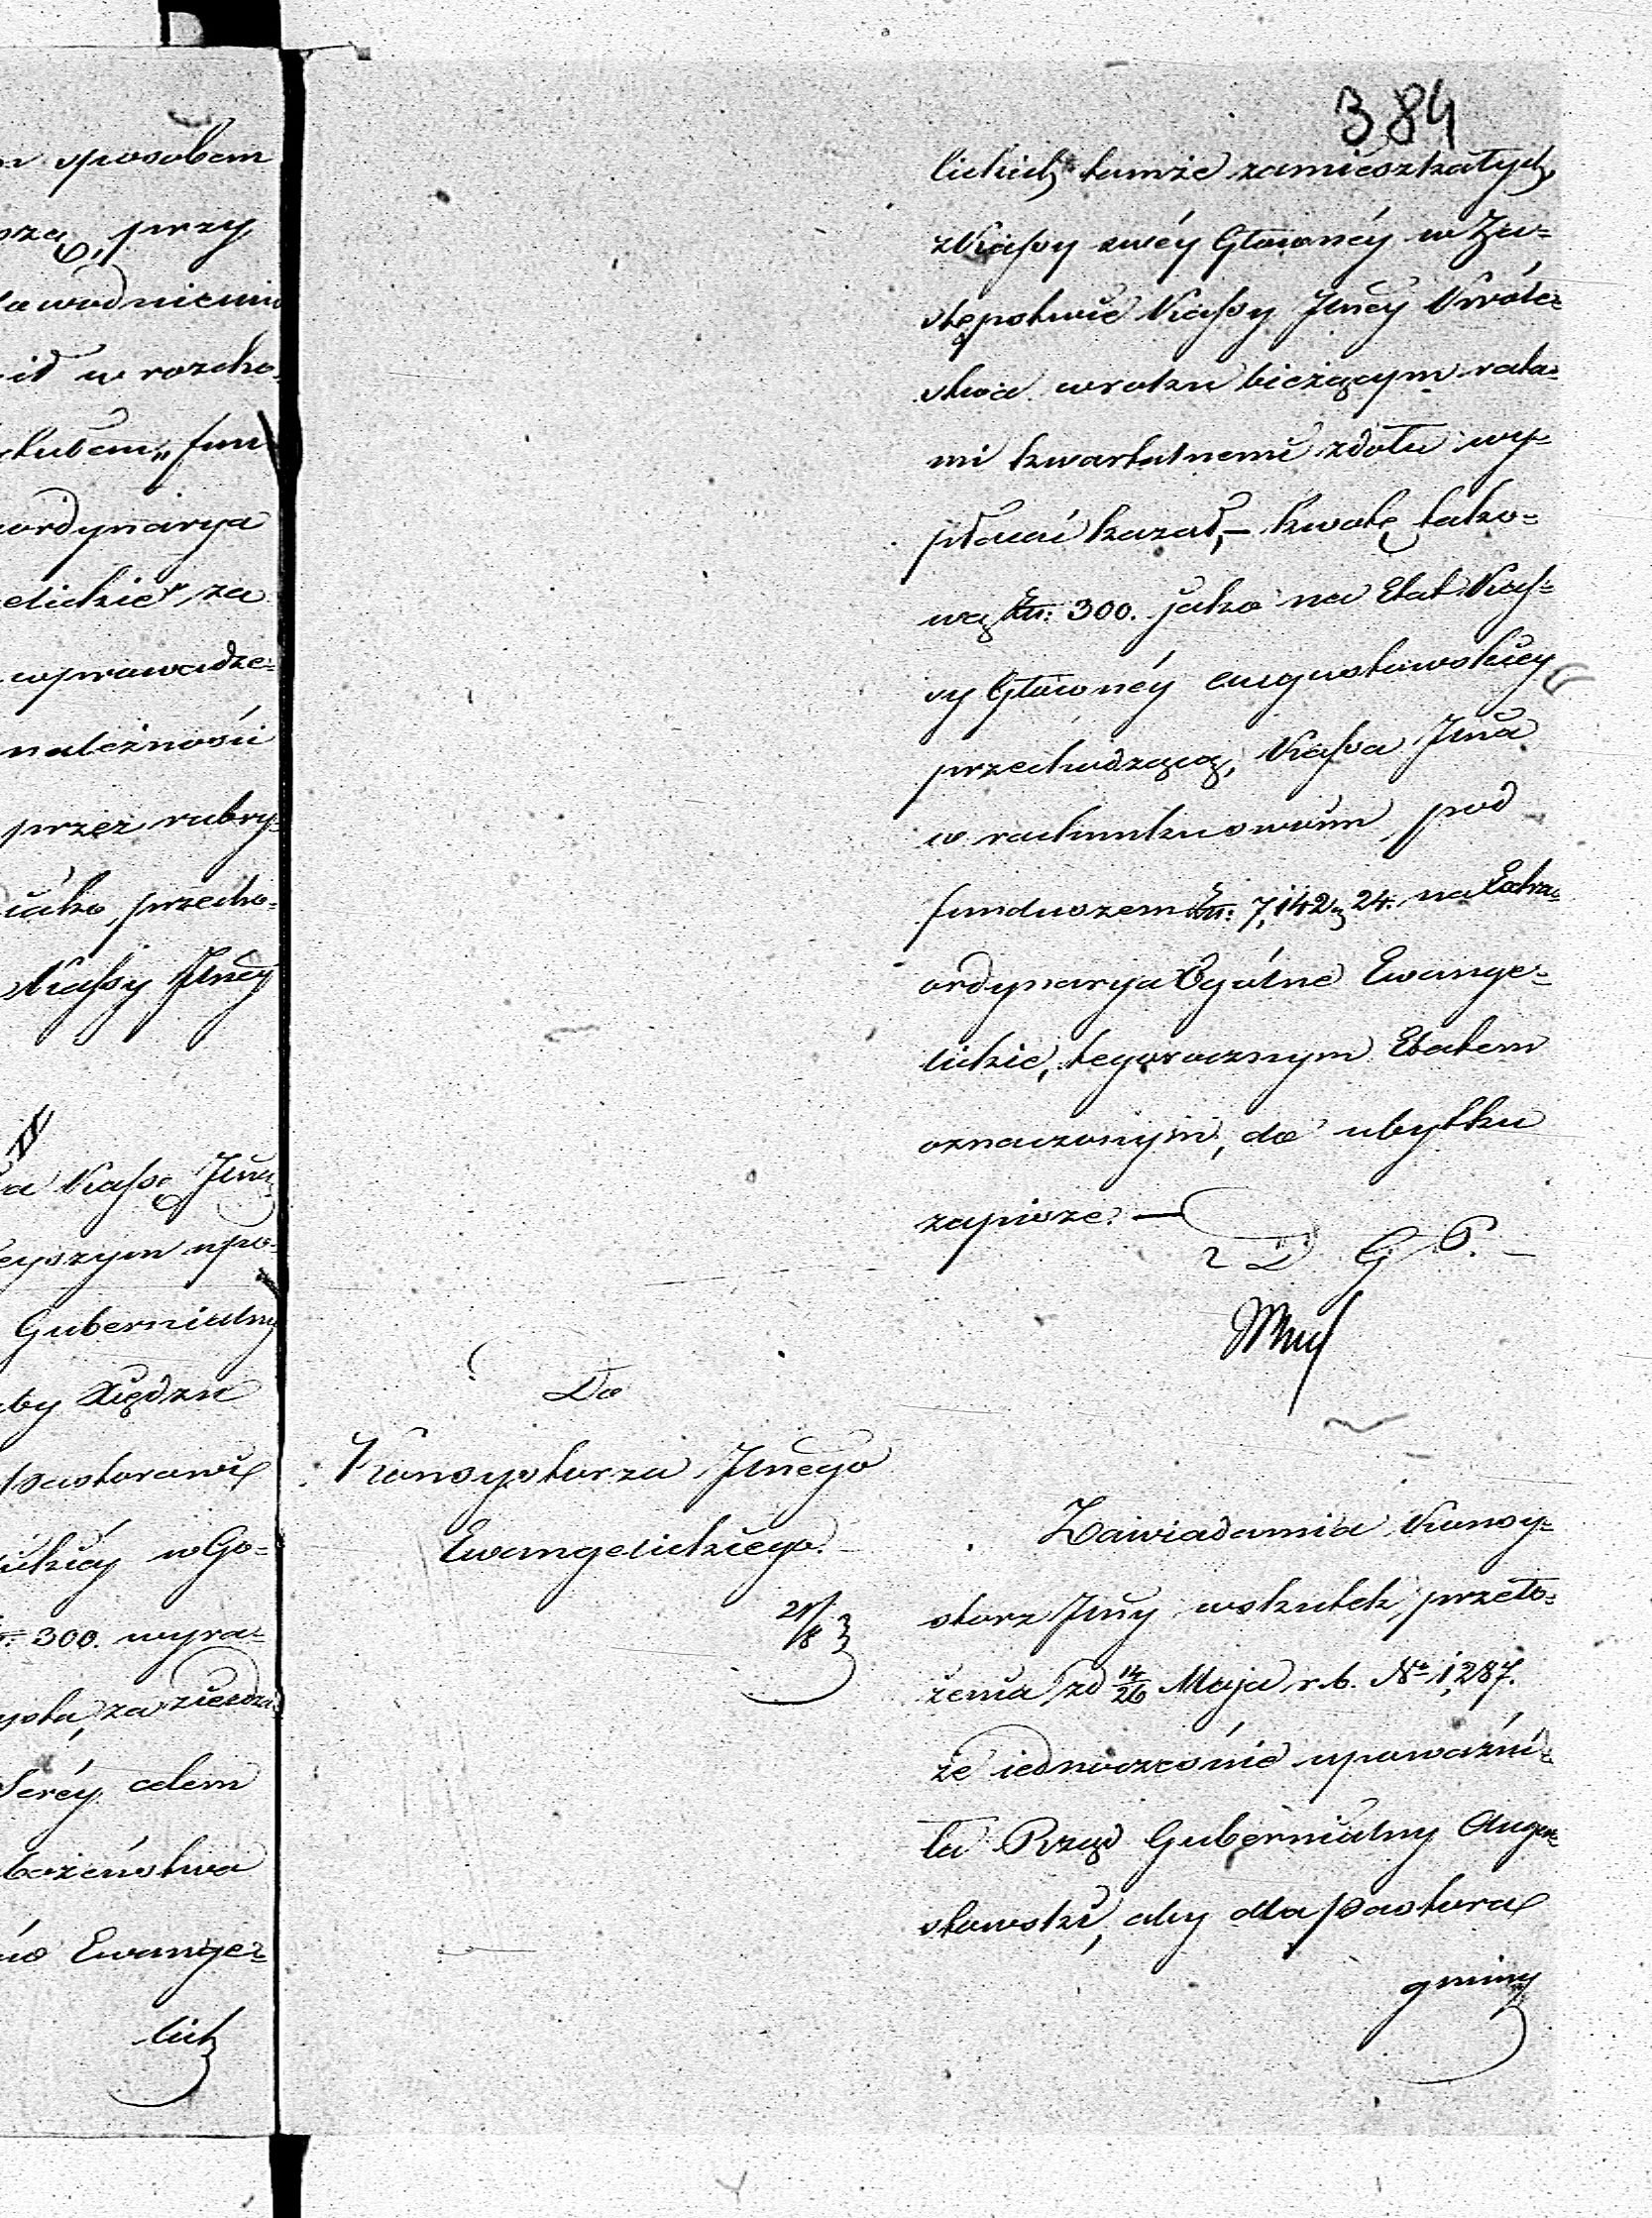 n sposobem
przy
wodnieniu
w rozcho-
fun
ordynarya
elickie" za
wprawadze=
należności
przez rubry-
iako przecho-
Kassy Jlney
II
a Kassę Jlną
eyszym upo-
Gubernialny
by Xiędzu
Pastorowi
w Go=
300. wyra=
za
celem
bożeństwa
Ewange=
lick
384
lickich tamże zamieszkałych,
z Kassy swéy Głównéy w Za=
stępstwie Kassy Jlnéy Króle=
stwa w roku bieżącym rata=
mi kwartalnemi zdołu wy=
płacać kazał, – kwotę tako=
wą 300. jako na Etat Kas=
sy Głównéy Augustowskiey
przechodzącą, Kassa Jlna
w rachunku swoim pod
funduszem 7,142, 24. na Extra=
ordynarya Ogólne Ewange=
lickie, tegorocznym Etatem
oznaczonym, do ubytku
zapisze. —
D G P. –
Do
Konsystorza Jlnego
Ewangelickiego.
21/8
Zawiadamia Konsy=
storz Jlny wskutek przeło=
żenia zd 14/26 Maja r.b. No 1,287.
że iednocześnie upoważni=
ła Rząd Gubernialny Augu=
stowski, aby dla Pastora
gminy